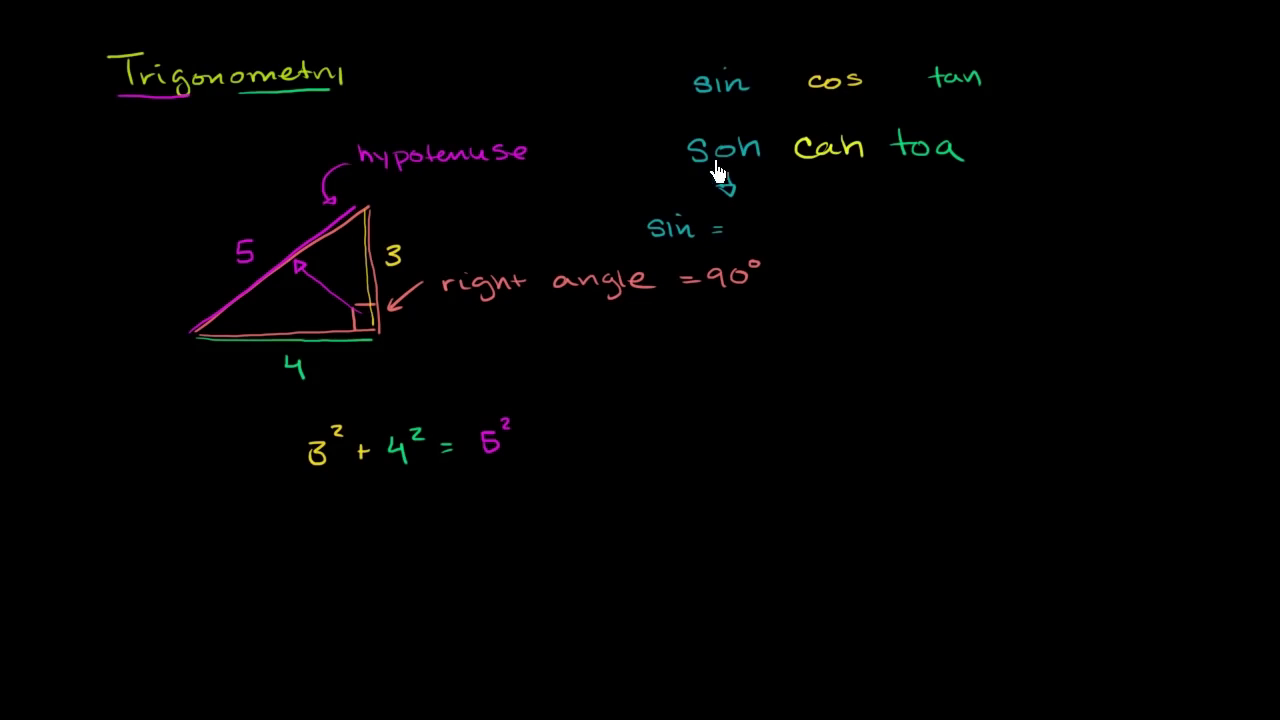 Trigonometry
sin cos tan
soh cah toa
hypotenuse
sin =
5
3
right angle = 90°
4
3² + 4² = 5²